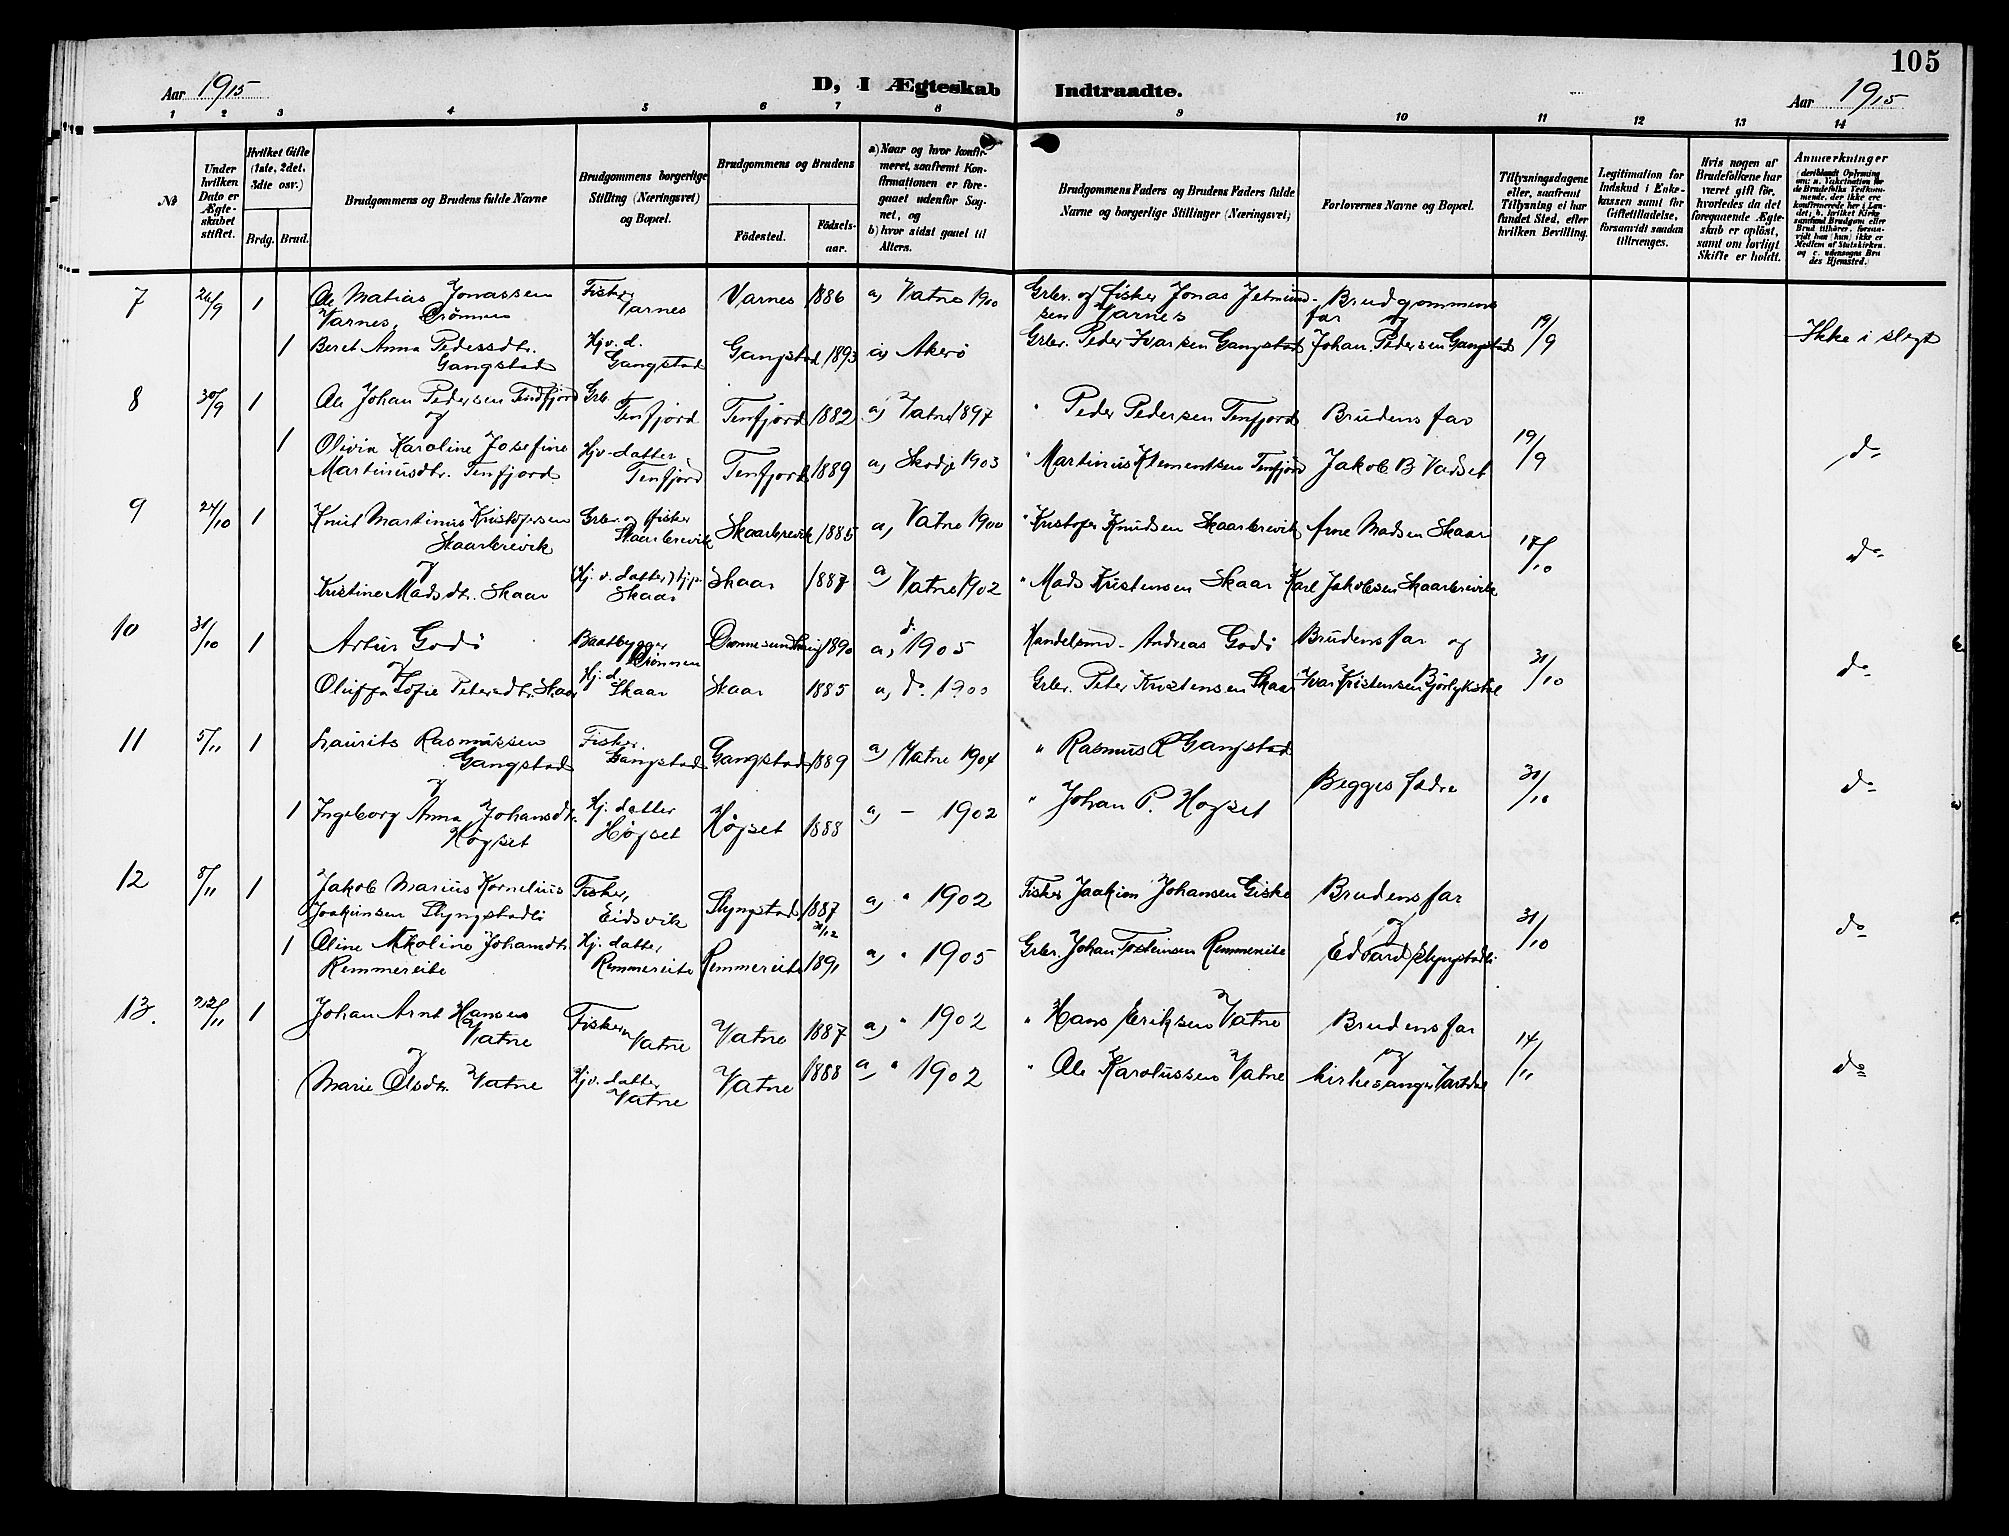 105
Aar 1915 D, I Ægteskab Indtraadte. Aar 1915
1 2 3 4 5 6 7 8 9 10 11 12 13 14
№
Under hvilken Dato er Ægteskabet stiftet.
Hvilket Gifte (1ste, 2det, 3die osv.)
Brdg. Brud.
Brudgommens og Brudens fulde Navne
Brudgommens borgerlige Stilling (Næringsvei) og Bopæl.
Brudgommens og Brudens
Födested. Födsels-aar.
a) Naar og hvor konfirmeret, saafremt Konfirmationen er foregaaet udenfor Sognet, og
b) hvor sidst gaaet til Alters.
Brudgommens Faders og Brudens Faders fulde Navne og borgerlige Stillinger (Næringsvei)
Forlovernes Navne og Bopæl.
Tillysningsdagene eller, saafremt Tillysning ei har fundet Sted, efter hvilken Bevilling.
Legitimation for Indskud i Enkekassen samt for Giftetilladelse, forsaavidt saadan tiltrænges.
Hvis nogen af Brudefolkene har været gift för, hvorledes da det foregaaende Ægteskab er oplöst, samt om lovligt Skifte er holdt.
Anmærkninger
7 26/9 1 Ole Matias Jonassen Fisker Varnes 1886 a, Vatne 1900 Grbr. og fisker Jonas Jetmundsen Varnes Brudgommens far og 19/9 Ikke i slegt
Varnes, Varnes
1 Beret Anna Pedersdtr. Gangstad Hjv. d. Gangstad Gangstad 1893 a, Akerö Grbr. Peder Ivarsen Gangstad Johan Pedersen Gangstad
8 30/9 1 Ole Johan Pedersen Tenfjord Grbr. Tenfjord Tenfjord 1882 a, Vatne 1897 " Peder Pedersen Tenfjord Brudens far
og
1 Olivia Karoline Josefine Martinusdtr. Tenfjord Hjv-datter Tenfjord Tenfjord 1889 a, Skodje 1903 " Martinus Klementsen Tenfjord Jakob B Vadset 19/9 do
9 24/10 1 Knut Martinus Kristofersen Skaarbrevik Grbr. og fisker Skaarbrevik Skaarbrevik 1885 a, Vatne 1900 " Kristofer Knudsen Skaarbrevik Arne Madsen Skaar 17/10 do
og
Kristine Madsdtr. Skaar Hj. v. datter Skaar Skaar 1887 a, Vatne 1902 " Mads Kristensen Skaar Karl Jakobsen Skaarbrevik
10 31/10 1 Artur Godö Baatbygger 1890 a, d. 1905 Handelsmd. Andreas Godö Brudens far og 31/10 do
og
Oluffa Sofie Petersdtr. Skaar Hj. d. Skaar Skaar 1885 a, do. 1900 Grbr. Peter Kristensen Skaar Ivar Kristensen
11 5/11 1 Laurits Rasmussen Gangstad Fisker. Gangstad Gangstad 1889 a, Vatne 1904 " Rasmus R Gangstad Begges fedre 31/10 do
og
1 Ingeborg Anna Johansdtr. Högset Hj. datter Högset Högset 1888 a, - 1902 " Johan P. Hogset
12 8/11 1 Jakob Marius Kornelius Joakimsen Slyngstadli Fisker, Eidsvik Slyngstad 1887 a, " 1902 Fisker Joakim Johansen Giske Brudens far 31/10 do
og
1 Oline Nikoline Johansdtr. Remmereite Hj. datter, Remmereite Remmereite 31/12 1891 a, " 1905 Grbr. Johan Torsteinsen Remmereite Edvard Slyngstadli
13. 22/11 1 Johan Arnt Hansen Vatne Fisker Vatne Vatne 1887 a, " 1902 " Hans Eriksen Vatne Brudens far 14/11 do
og og
Marie Olsdtr. Vatne Hjv. datter Vatne Vatne 1888 a, " 1902 " Ole Karolussen Vatne kirkesanger Vartdal